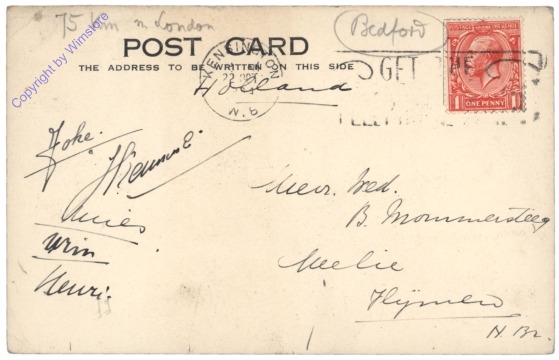 75 km n London
Bedford
POST CARD
THE ADDRESS TO BE WRITTEN ON THIS SIDE
KENSINGTON
22 OCT
N. 6
Holland
GET THE
1 ONE PENNY 1
Joke.
Mies
Wim
Henri.
Mevr. Wed.
B. Mommersteeg
Melie
Hijmen
N. Br.
Copyright by Wimstore